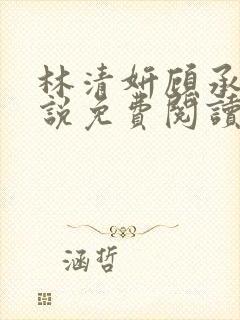 林清妍顾承
說免費閱讀
涵哲